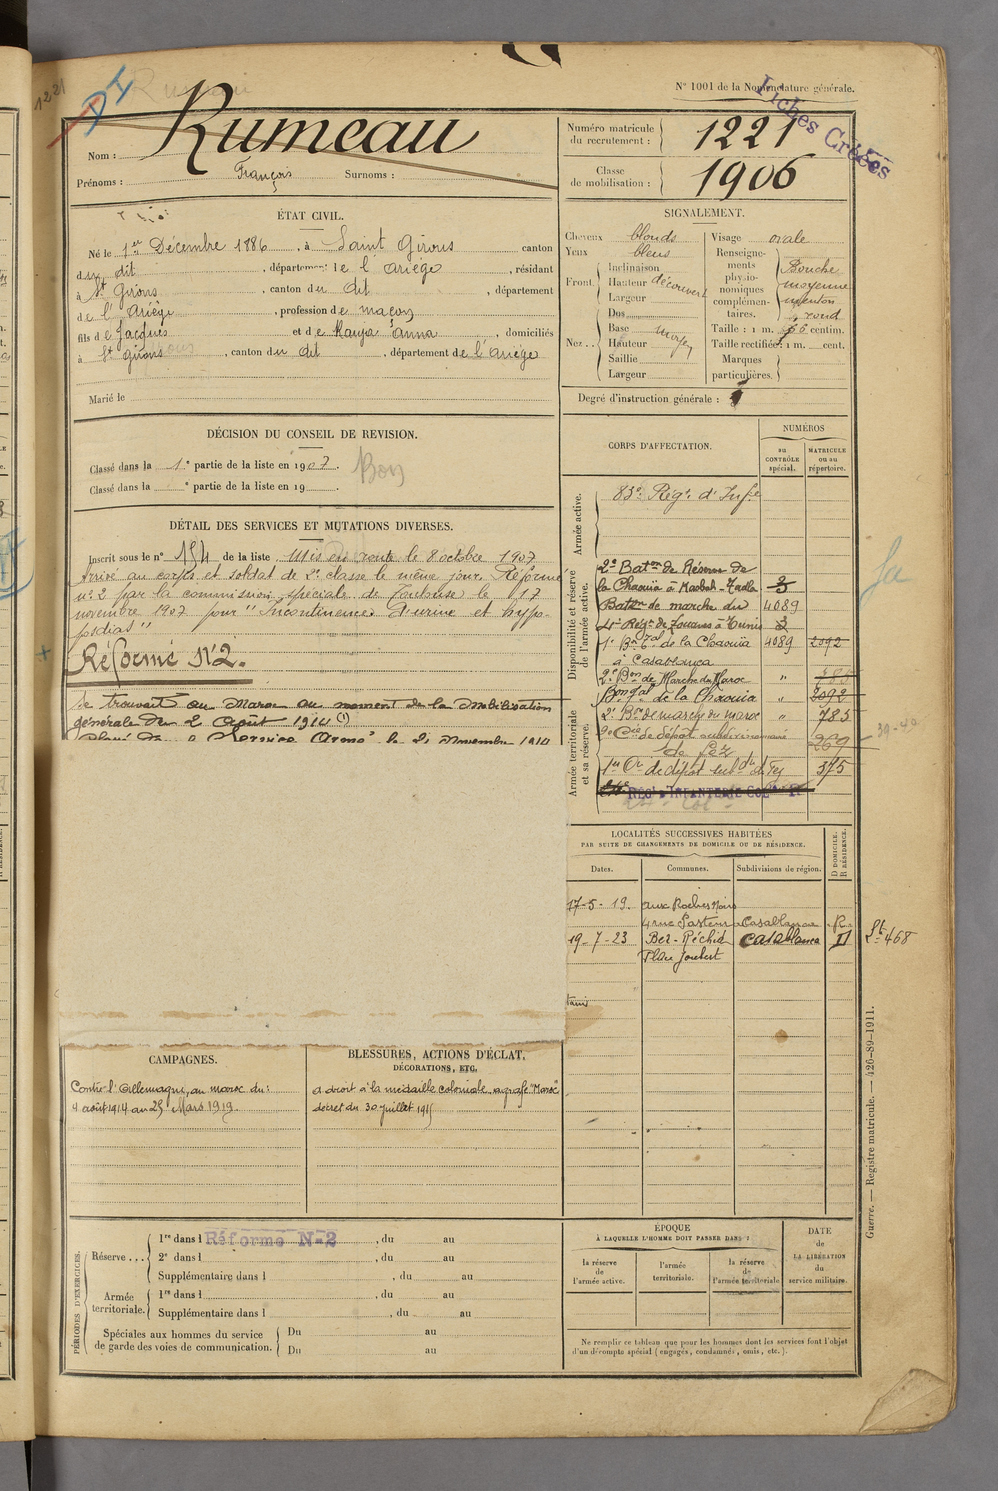 N° 1001 de la Nomenclature générale.
Fiches Créées
1221
Rumeau
Nom :
Prénoms : François Surnoms :
Numéro matricule du recrutement : 1221
Classe de mobilisation : 1906
ÉTAT CIVIL.
Né le 1er Décembre 1886, à Saint Girons canton
du dit, département de l'Ariège, résidant
à St Girons, canton du dit, département
de l'Ariège, profession de maçon
fils de Jacques et de Anna, domiciliés
à St Girons, canton du dit, département de l'Ariège
Marié le
SIGNALEMENT.
Cheveux blonds
Yeux bleus
Front
Inclinaison
Hauteur découvert
Largeur
Nez
Dos
Base moyen
Hauteur
Saillie
Largeur
Visage ovale
Renseignements physionomiques complémentaires.
Bouche
moyenne
menton
rond
Taille : 1 m. 66 centim.
Taille rectifiée : 1 m. cent.
Marques particulières.
Degré d'instruction générale :
DÉCISION DU CONSEIL DE REVISION.
Classé dans la 1e partie de la liste en 1907. Bon
Classé dans la e partie de la liste en 19
DÉTAIL DES SERVICES ET MUTATIONS DIVERSES.
Inscrit sous le n° 154 de la liste. Mis en route le 8 octobre 1907
Arrivé au corps et soldat de 2e classe le même jour. Réformé
n° 2 par la commission spéciale de Toulouse le 17
novembre 1907 pour "Incontinence d'urine et hypo-
spdias"
Réformé N°2.
Se trouvait au Maroc au moment de la Mobilisation
générale du 2 Août 1914 (1)
Service Armé le 21 Novembre 1914
CORPS D'AFFECTATION.
NUMÉROS
au CONTRÔLE spécial.
MATRICULE ou au répertoire.
Armée active.
83e Régt d'Infie
Disponibilité et réserve de l'armée active.
2e Baton de Réserve de
la Chaouïa à Kasbah-Tadla 3
Baton de marche du 4089
4e Régt de Zouaves à Tunis 3
1e Bn de la Chaouïa 4089 2092
à Casablanca
2e Bon de Marche du Maroc " 785
Armée territoriale et sa réserve.
Bon de la Chaouia " 2092
2e Bon de marche du maroc " 785
2e Cie de dépôt subdivisionnaire 269
de Fez
1er Cie de dépôt subdre de Fez 375
39-40
LOCALITÉS SUCCESSIVES HABITÉES
PAR SUITE DE CHANGEMENTS DE DOMICILE OU DE RÉSIDENCE.
Dates. Communes. Subdivisions de région. D DOMICILE. R RÉSIDENCE.
17-5-19. aux Roches Noires
4 rue Pasteur Casablanca R
19-7-23 Ber-Réchid Casablanca D
Place Joubert
468
CAMPAGNES.
Contre l'Allemagne, au maroc du :
4 août 1914 au 25 Mars 1919.
BLESSURES, ACTIONS D'ÉCLAT, DÉCORATIONS, ETC.
a droit à la médaille coloniale, agrafe "Maroc"
décret du 30 juillet 1915
PÉRIODES D'EXERCICES.
Réserve
1re dans l Réforme N-2, du au
2e dans l , du au
Supplémentaire dans l , du au
Armée territoriale.
1re dans l , du au
Supplémentaire dans l , du au
Spéciales aux hommes du service de garde des voies de communication.
Du au
Du au
ÉPOQUE
À LAQUELLE L'HOMME DOIT PASSER DANS :
la réserve de l'armée active.
l'armée territoriale.
la réserve de l'armée territoriale
DATE de LA LIBÉRATION du service militaire.
Ne remplir ce tableau que pour les hommes dont les services font l'objet
d'un décompte spécial (engagés, condamnés, omis, etc.).
Guerre. — Registre matricule. — 426-89-1911.